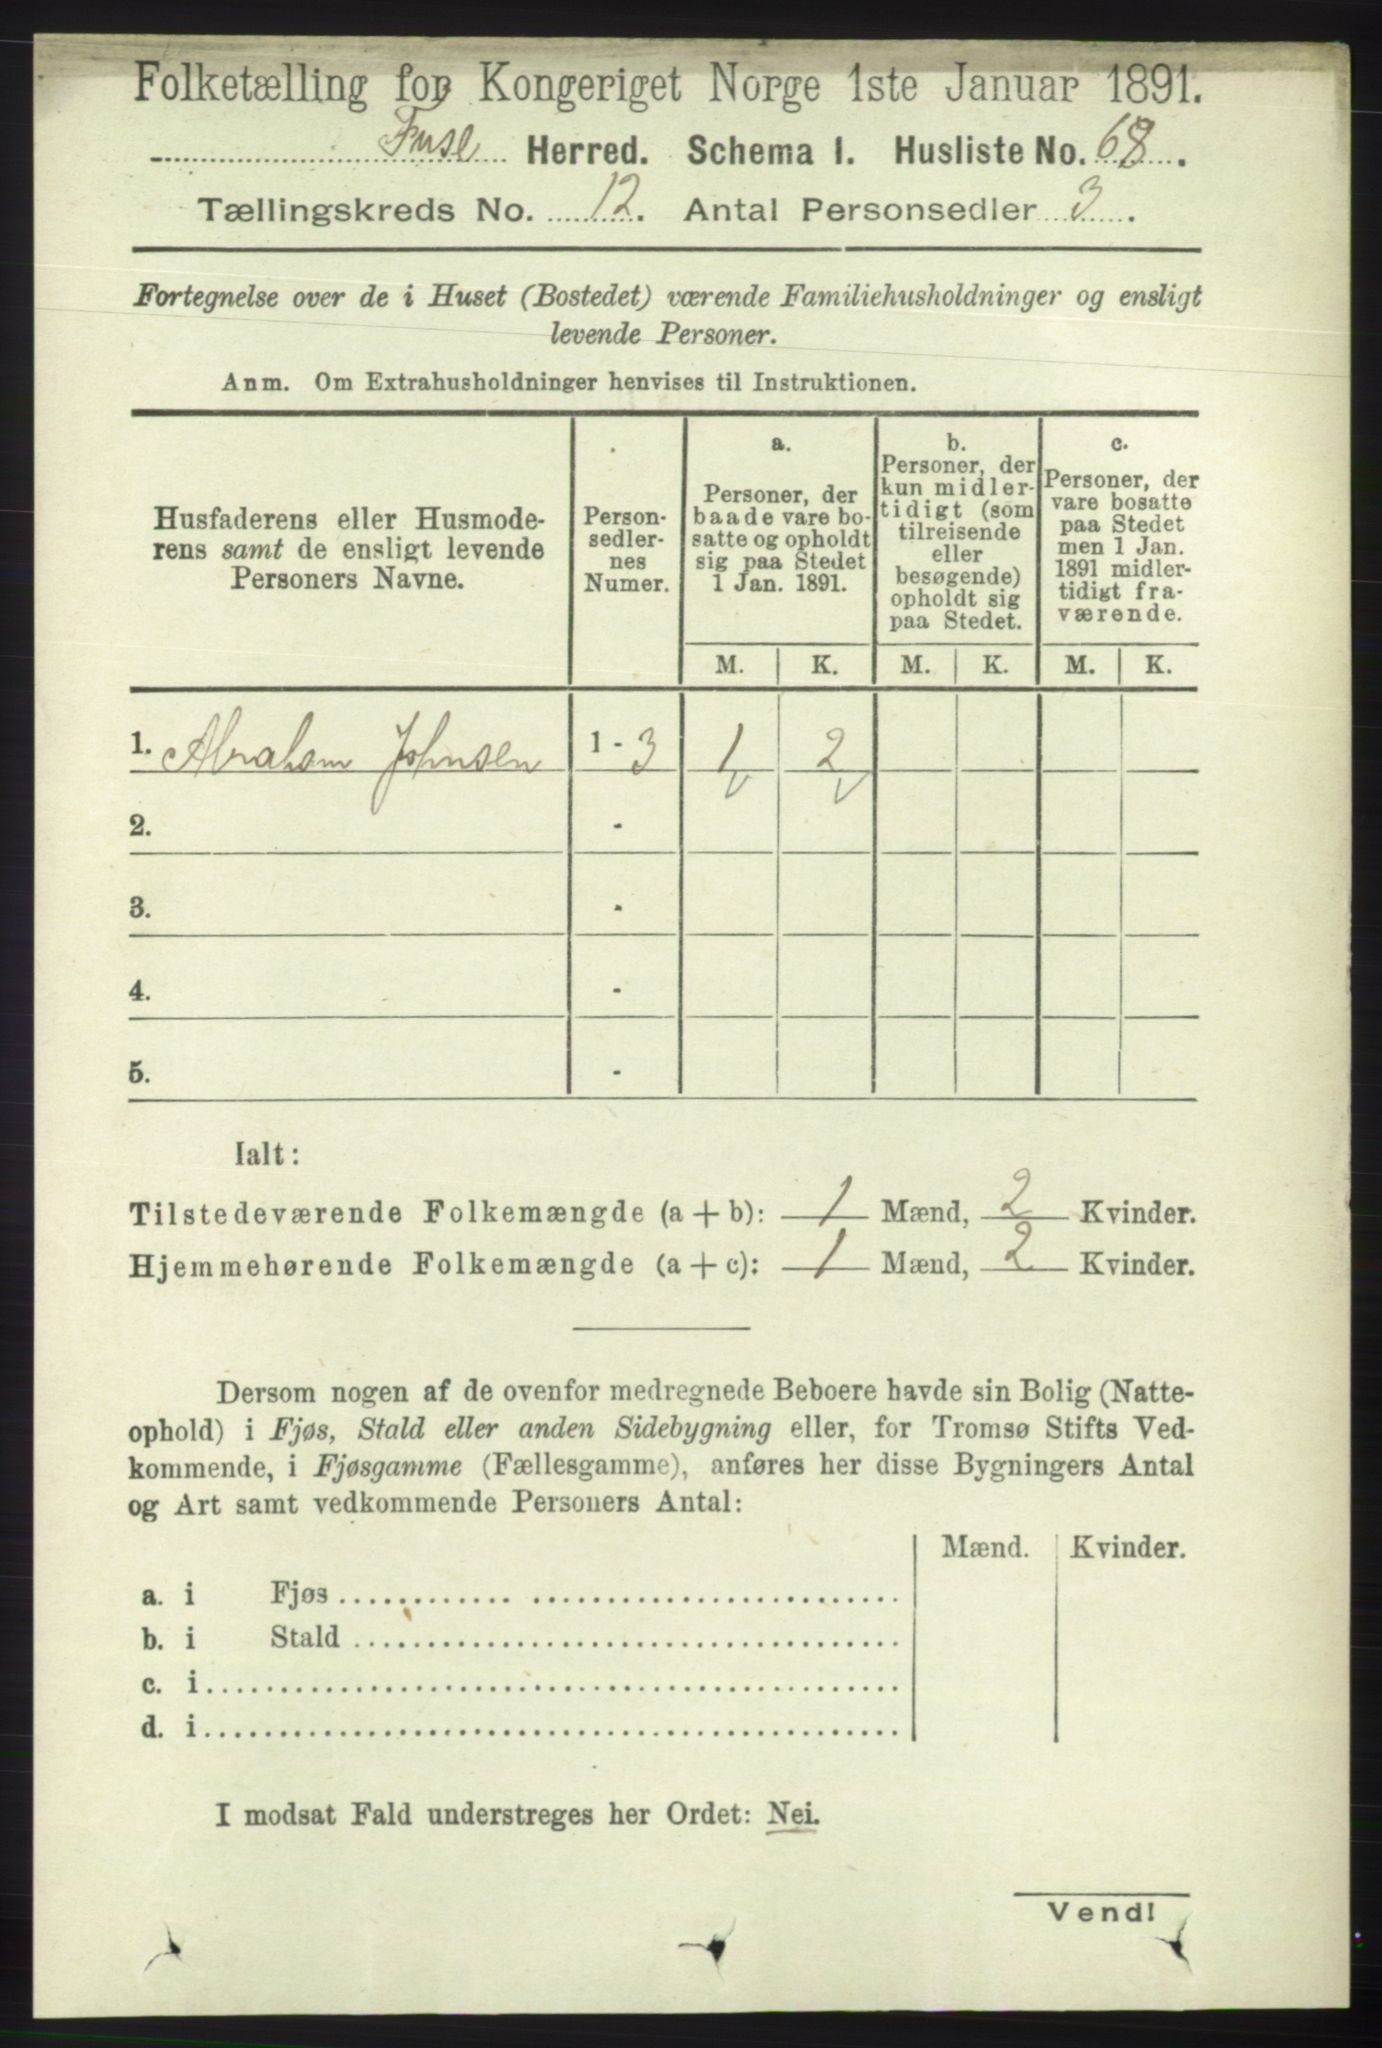 Folketælling for Kongeriget Norge 1ste Januar 1891.
Fuse Herred. Schema I. Husliste No. 68.
Tællingskreds No. 12. Antal Personsedler 3.
Fortegnelse over de i Huset (Bostedet) værende Familiehusholdninger og ensligt
levende Personer.
Anm. Om Extrahusholdninger henvises til Instruktionen.
Husfaderens eller Husmode-
rens samt de ensligt levende
Personers Navne.
Person-
sedler-
nes
Numer.
a.
Personer, der
baade vare bo-
satte og opholdt
sig paa Stedet
1 Jan. 1891.
b.
Personer, der
kun midler-
tidigt (som
tilreisende
eller
besøgende)
opholdt sig
paa Stedet.
c.
Personer, der
vare bosatte
paa Stedet
men 1 Jan.
1891 midler-
tidigt fra-
værende.
M. K. M. K. M. K.
1. Abraham Johnsen 1 - 3 1 2
2. -
3. -
4. -
5. -
Ialt:
Tilstedeværende Folkemængde (a + b): 1 Mænd, 2 Kvinder.
Hjemmehørende Folkemængde (a + c): 1 Mænd, 2 Kvinder.
Dersom nogen af de ovenfor medregnede Beboere havde sin Bolig (Natte-
ophold) i Fjøs, Stald eller anden Sidebygning eller, for Tromsø Stifts Ved-
kommende, i Fjøsgamme (Fællesgamme), anføres her disse Bygningers Antal
og Art samt vedkommende Personers Antal:
Mænd. Kvinder.
a. i Fjøs
b. i Stald
c. i
d. i
I modsat Fald understreges her Ordet: Nei.
Vend!